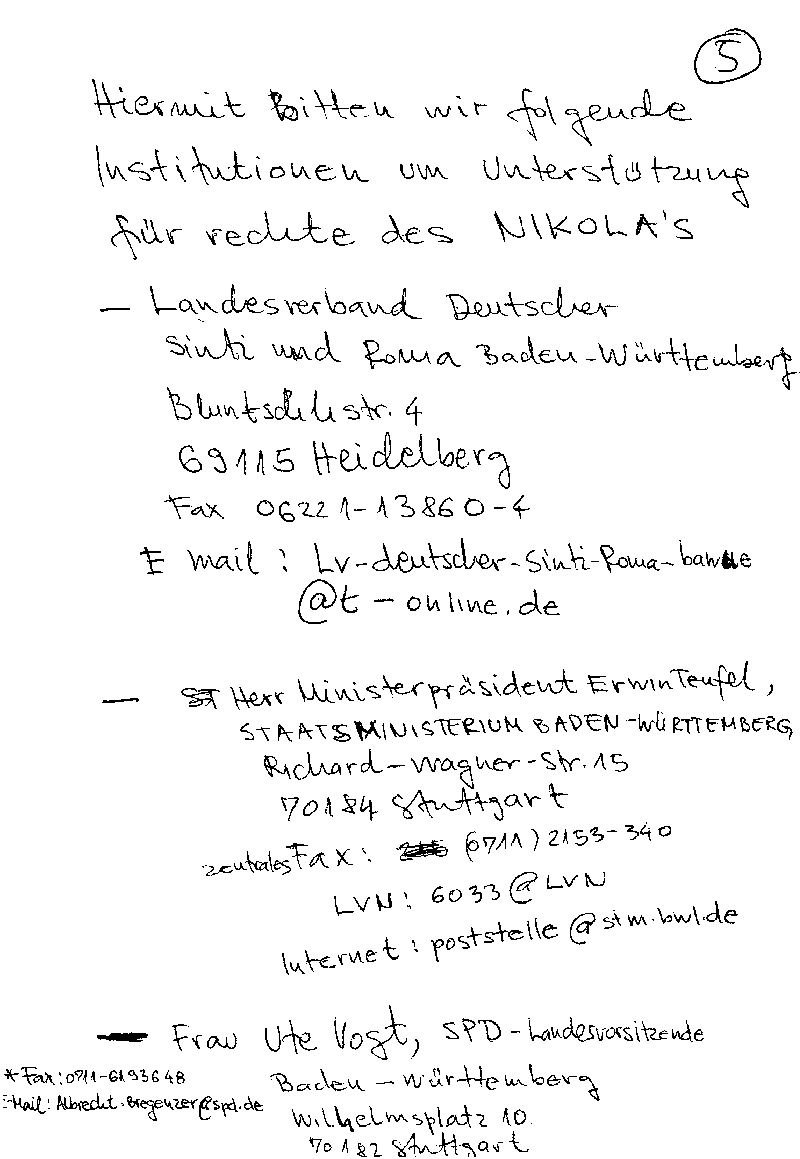 5
Hiermit Bitten wir folgende
Institutionen um Unterstützung
für rechte des NIKOLA'S
- Landesverband Deutscher
Sinti und Roma Baden-Württemberg
Bluntschlistr. 4
69115 Heidelberg
Fax 06221-13860-4
E mail: Lv-deutscher-Sinti-Roma-bawue
@t-online.de
- Herr Ministerpräsident Erwin Teufel,
STAATSMINISTERIUM BADEN-WÜRTTEMBERG
Richard-Wagner-Str. 15
70184 Stuttgart
zentrales Fax: (0711) 2153-340
LVN: 6033@LVN
Internet: poststelle@stm.bwl.de
- Frau Ute Vogt, SPD-Landesvorsitzende
*Fax: 0711-6193648
Baden-Württemberg
E-Mail: Albrecht.Bregenzer@spd.de
Wilhelmsplatz 10
70182 Stuttgart